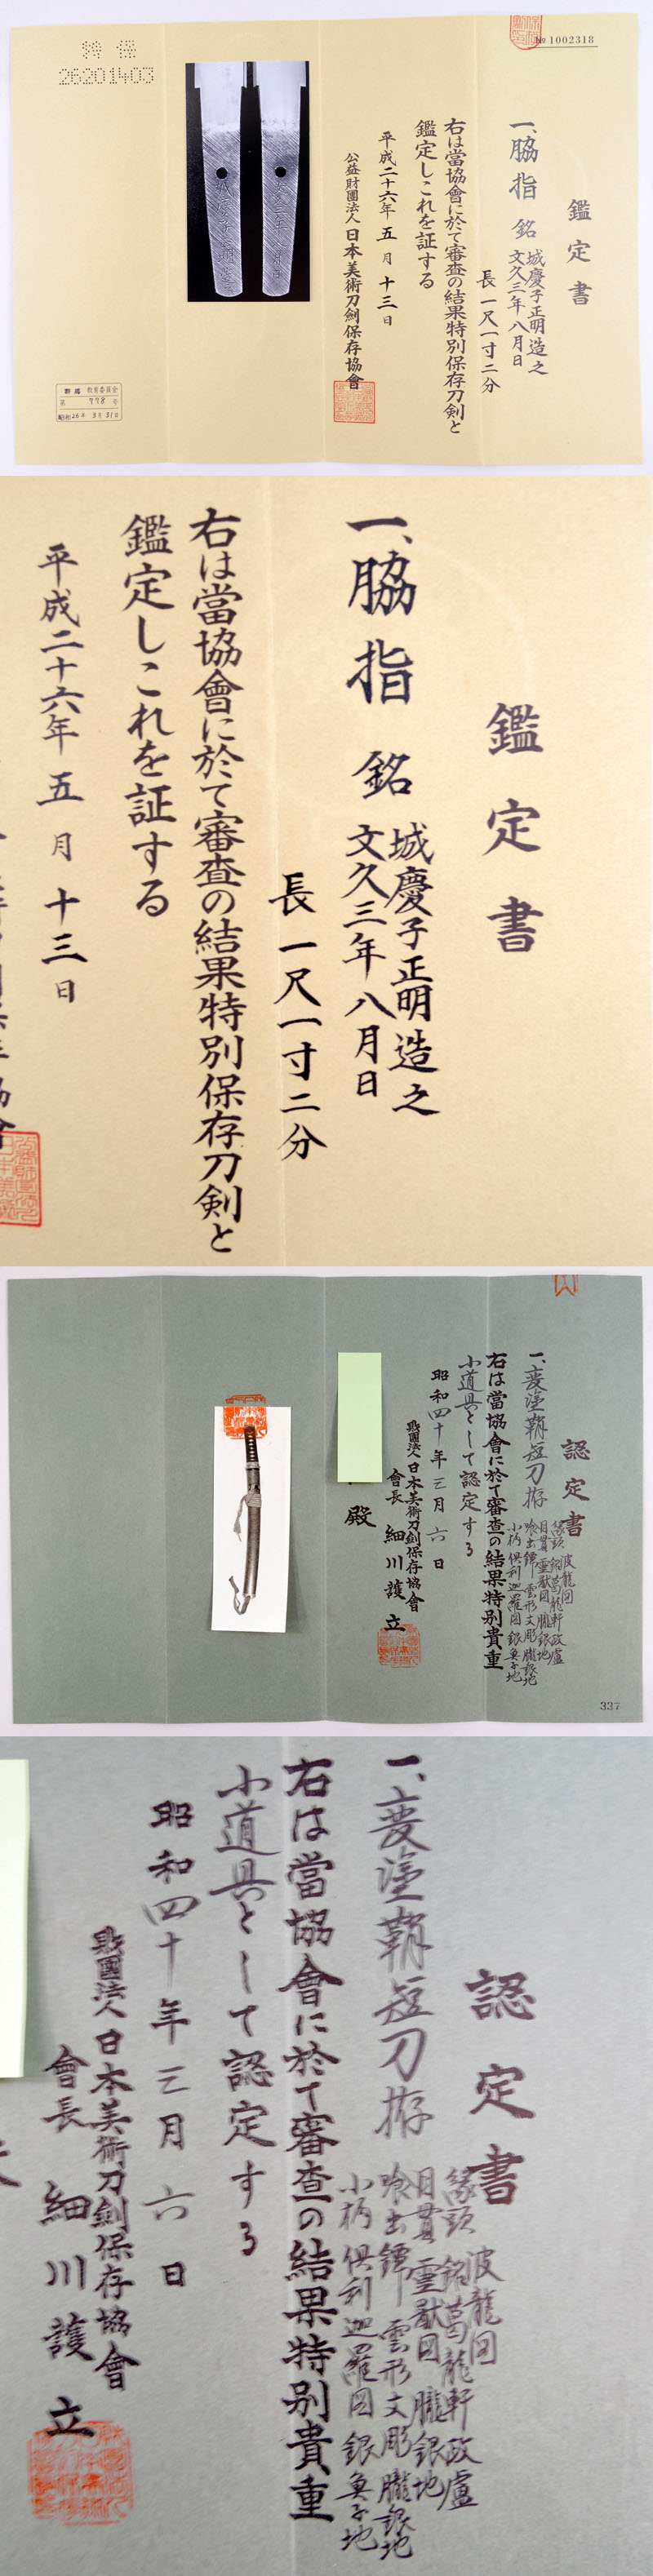 特保
26201403
№ 1002318
鑑定書
一、脇指 銘 城慶子正明造之
文久三年八月日
長 一尺一寸二分
右は當協會に於て審査の結果特別保存刀剣と
鑑定しこれを証する
平成二十六年 五 月 十三 日
公益財團法人 日本美術刀剣保存協會
群馬 教育委員会
第 778 号
昭和26年 3月 31日
鑑定書
一、脇指 銘 城慶子正明造之
文久三年八月日
長 一尺一寸二分
右は當協會に於て審査の結果特別保存刀剣と
鑑定しこれを証する
平成二十六年 五 月 十三 日
認定書
一、変塗鞘短刀拵
縁頭 波龍図
銘 葛龍軒政盧
目貫 霊獣図 朧銀地
喰出鐔 雲形文彫 朧銀地
小柄 倶利迦羅図 銀魚子地
右は當協會に於て審査の結果特別貴重
小道具として認定する
昭和四十年三月六日
財團法人 日本美術刀剣保存協會
會長 細川護立
殿
337
認定書
一、変塗鞘短刀拵
縁頭 波龍図
銘 葛龍軒政盧
目貫 霊獣図 朧銀地
喰出鐔 雲形文彫 朧銀地
小柄 倶利迦羅図 銀魚子地
右は當協會に於て審査の結果特別貴重
小道具として認定する
昭和四十年三月六日
財團法人 日本美術刀剣保存協會
會長 細川護立